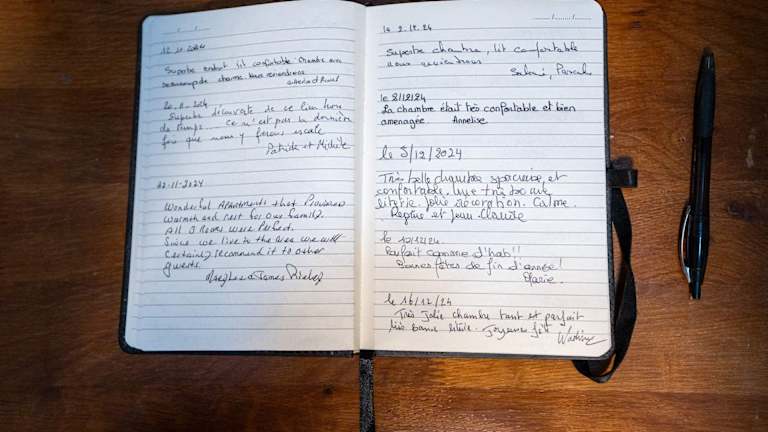 12.11.2024
Superbe endroit lit confortable. Chambre avec
beaucoup de charme. Nous reviendrons
20.11.2024
Superbe découverte de ce lieu hors
du temps... Ce n'est pas la dernière
fois que nous y ferons escale
Patrick et Michèle
22.11.2024
Wonderful Apartments that Provided
warmth and rest for our family.
All 3 Rooms were Perfect.
Since we live to the area we will
certainly recommend it to other
guests.
& James
le 2.12.24
Superbe chambre, lit confortable
nous reviendrons
Pascal
le 2/12/24
La chambre était très confortable et bien
amenagée. Annelise
le 5/12/2024
Très belle chambre spacieuse, et
confortable. Une très bonne
literie. Jolie décoration. Calme.
Régine et Jean-Claude
le 12/12/24.
Parfait comme d'hab!!
Bonnes fêtes de fin d'année!
Marie.
le 16/12/24
Très Jolie chambre tout et parfait
très bonne literie. Joyeuse fête